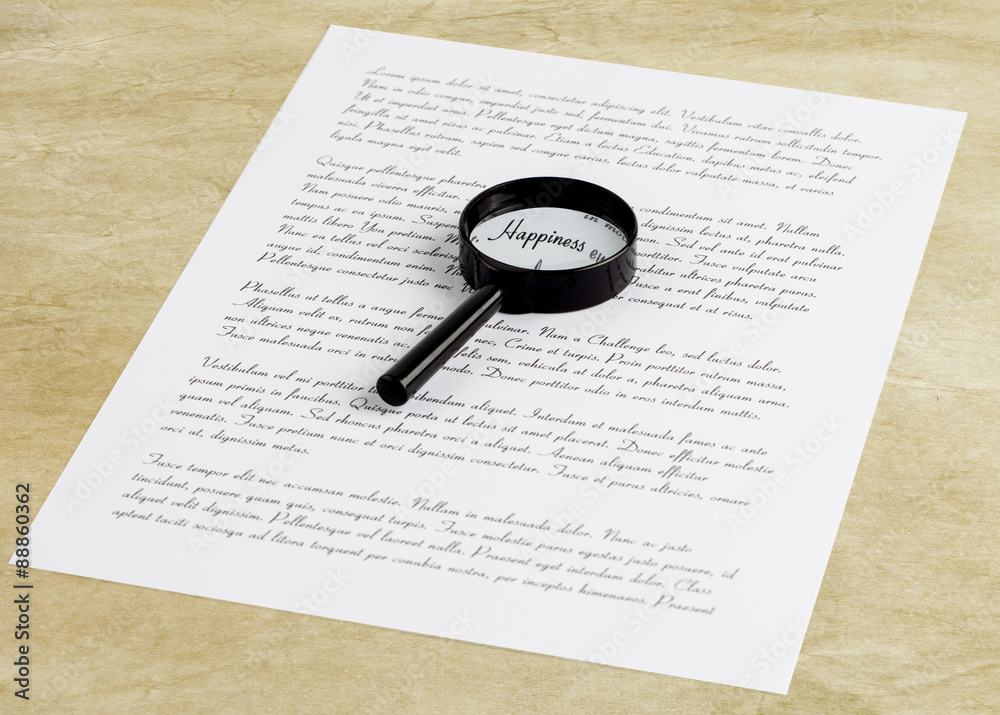 Lorem ipsum dolor sit amet, consectetur adipiscing elit. Vestibulum vitae convallis dolor.
Nam in odio congue, imperdiet justo sed, fermentum dui. Vivamus rutrum sollicitudin tempor.
Ut et imperdiet urna. Pellentesque eget dictum magna, sagittis fermentum lorem. Donec
fringilla sit amet risus ac pulvinar. Etiam a lectus Education, dapibus metus ac, eleifend
nisi. Phasellus rutrum, sapien sed congue varius, lectus dolor vulputate massa, et varius
ligula magna eget velit.
Quisque pellentesque pharetra condimentum sit amet. Vestibulum
malesuada viverra efficitur. dignissim lectus at, pharetra nulla.
Nam posuere odio mauris, Sed vel ante id erat pulvinar
tempus ac eu ipsum. porttitor. Fusce vulputate arcu
mattis libero You pretium. ultrices pharetra purus.
Nunc eu tellus vel orci Fusce a erat finibus, vulputate
augue id, condimentum enim. consequat et at risus.
Pellentesque consectetur justo nec
in
Happiness
Phasellus ut tellus a augue pulvinar. Nam a Challenge leo, sed luctus dolor.
Aliquam velit ex, rutrum non nec, Crime et turpis. Proin porttitor rutrum massa,
non ultrices neque venenatis ac. felis sem, vehicula at dolor a, pharetra aliquam urna.
Fusce malesuada orci in commodo. Donec porttitor odio in eros interdum mattis.
Vestibulum vel mi porttitor bibendum aliquet. Interdum et malesuada fames ac ante
ipsum primis in faucibus. Quisque porta ut lectus sit amet placerat. Donec efficitur molestie
quam vel aliquam. Sed rhoncus pharetra orci a aliquet. Aenean aliquam efficitur
venenatis. Fusce pretium nunc et orci dignissim consectetur. Fusce et purus ultricies, ornare
orci ut, dignissim metus.
Fusce tempor elit nec accumsan molestie. Nullam in malesuada dolor. Nunc ac justo
tincidunt, posuere quam quis, consequat turpis. Fusce molestie purus egestas justo posuere, id
aliquet velit dignissim. Pellentesque vel laoreet nulla. Praesent eget interdum dolor. Class
aptent taciti sociosqu ad litora torquent per conubia nostra, per inceptos himenaeos. Praesent
Adobe Stock | #88860362